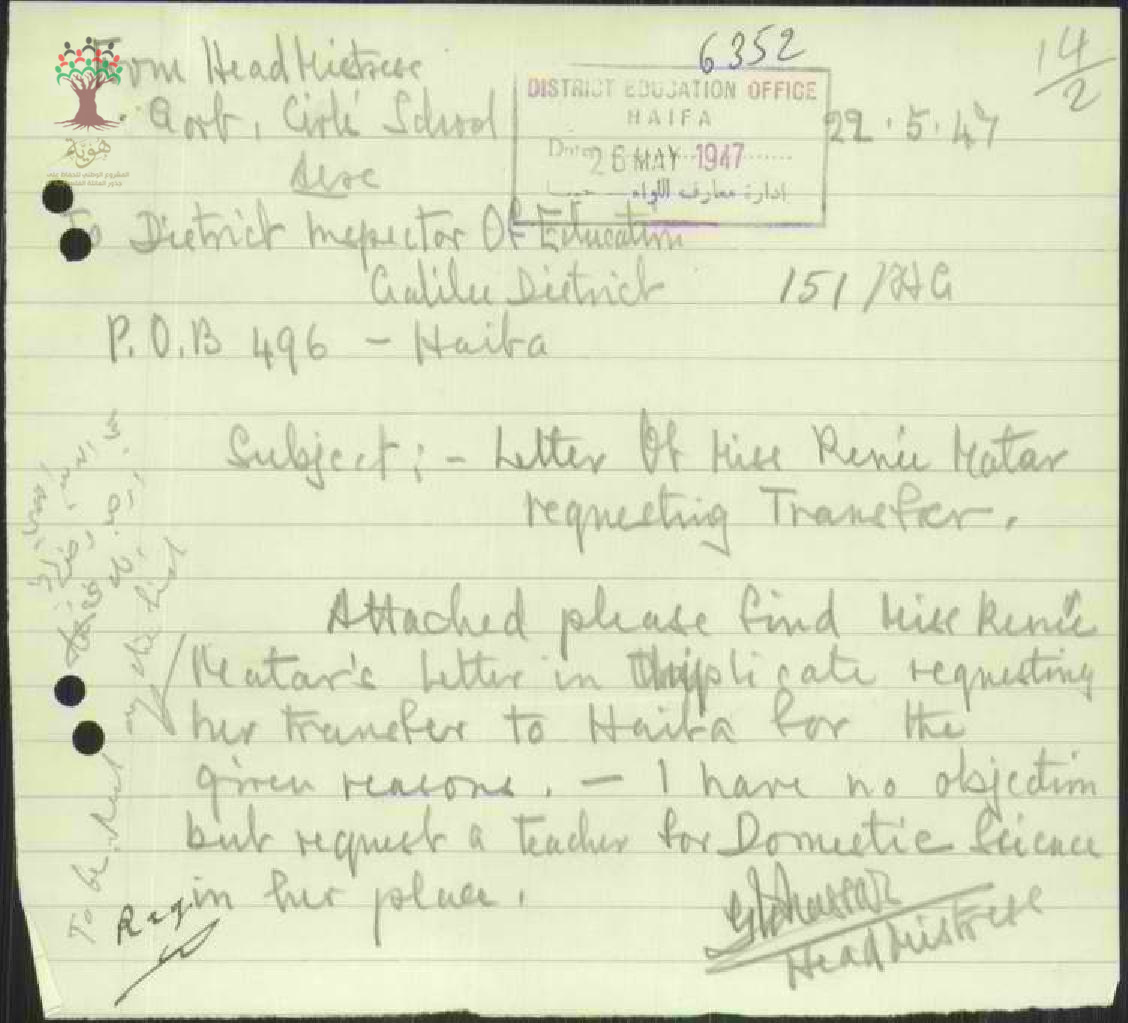 6352
14/2
From HeadMistress
Govt, Girls' School
Acre
22.5.47
DISTRICT EDUCATION OFFICE
HAIFA
Date 26 MAY 1947
ادارة معارف اللواء - حيفا
To District Inspector Of Education
Galilee District
151/HG
P.O.B 496 - Haifa
Subject:- Letter Of Miss Renée Matar
requesting Transfer.
Attached please find Miss Renée
Matar's letter in triplicate requesting
her transfer to Haifa for the
given reasons. - I have no objection
but request a teacher for Domestic Science
in her place.
HeadMistress
To be
Reg.
هوية